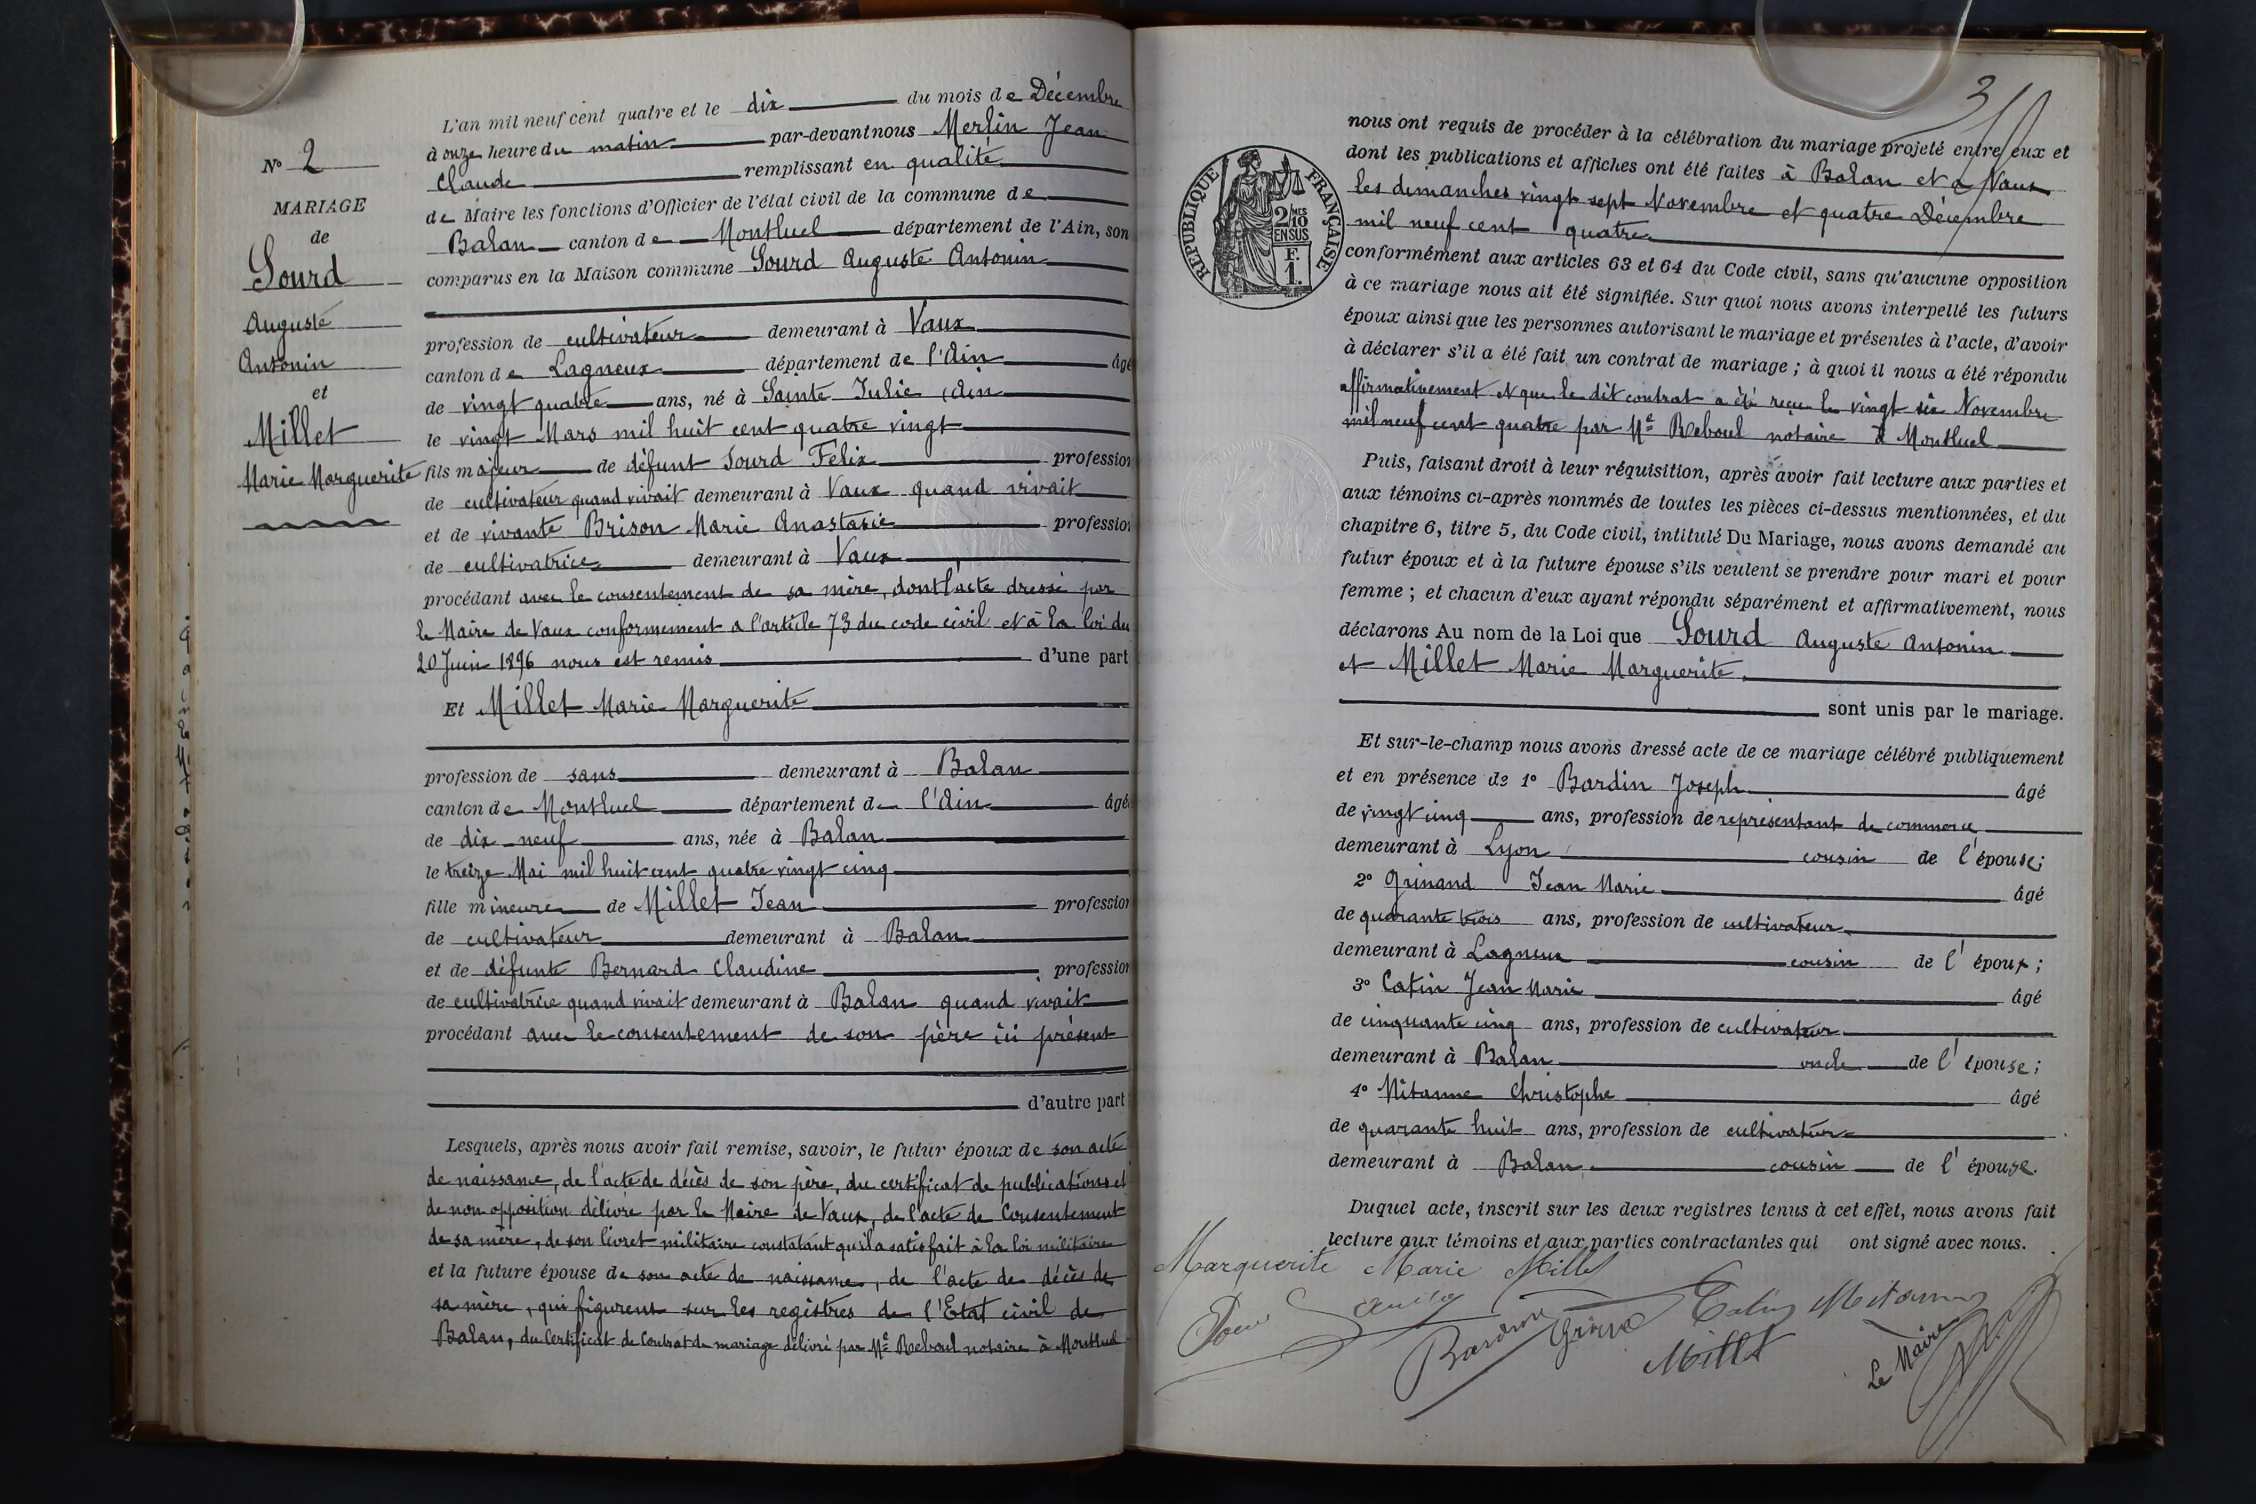 L'an mil neuf cent quatre et le dix du mois de Décembre
à onze heure du matin par-devant nous Merlin Jean
Claude remplissant en qualité
de Maire les fonctions d'Officier de l'état civil de la commune de
Balan canton de Montluel département de l'Ain, son
comparus en la Maison commune Sourd Auguste Antonin
profession de cultivateur demeurant à Vaux
canton de Lagneux département de l'Ain âgé
de vingt quatre ans, né à Sainte Julie (Ain
le vingt Mars mil huit cent quatre vingt
fils majeur de défunt Sourd Félix profession
de cultivateur quand vivait demeurant à Vaux quand vivait
et de vivante Brison Marie Anastasie profession
de cultivatrice demeurant à Vaux
procédant avec le consentement de sa mère, dont l'acte dressé par
le Maire de Vaux conformement a l'article 73 du code civil et à la loi du
20 Juin 1896 nous est remis d'une part
Et Millet Marie Marguerite
profession de sans demeurant à Balan
canton de Montluel département de l'Ain âgé
de dix neuf ans, née à Balan
le treize Mai mil huit cent quatre vingt cinq
fille mineure de Millet Jean profession
de cultivateur demeurant à Balan
et de défunte Bernard Claudine profession
de cultivatrice quand vivait demeurant à Balan quand vivait
procédant avec le consentement de son père ici présent
d'autre part
Lesquels, après nous avoir fait remise, savoir, le futur époux de son acte
de naissance, de l'acte de décès de son père, du certificat de publications et
de non opposition délivré par le Maire de Vaux, de l'acte de Consentement
de sa mère, de son livret militaire constatant qu'il a satisfait à la loi militaire
et la future épouse de son acte de naissance, de l'acte de décès de
sa mère, qui figurent sur les registres de l'Etat civil de
Balan, du Certificat de Contrat de mariage délivré par Me Reboul notaire à Montluel
N° 2
MARIAGE
de
Sourd
Auguste
Antonin
et
Millet
Marie Marguerite
3
nous ont requis de procéder à la célébration du mariage projeté entre eux et
dont les publications et affiches ont été faites à Balan et à Vaux
les dimanches vingt sept Novembre et quatre Décembre
mil neuf cent quatre
conformément aux articles 63 et 64 du Code civil, sans qu'aucune opposition
à ce mariage nous ait été signifiée. Sur quoi nous avons interpellé les futurs
époux ainsi que les personnes autorisant le mariage et présentes à l'acte, d'avoir
à déclarer s'il a été fait un contrat de mariage ; à quoi il nous a été répondu
affirmativement et que le dit contrat a été reçu le vingt six Novembre
mil neuf cent quatre par Me Reboul notaire à Montluel
Puis, faisant droit à leur réquisition, après avoir fait lecture aux parties et
aux témoins ci-après nommés de toutes les pièces ci-dessus mentionnées, et du
chapitre 6, titre 5, du Code civil, intitulé Du Mariage, nous avons demandé au
futur époux et à la future épouse s'ils veulent se prendre pour mari et pour
femme ; et chacun d'eux ayant répondu séparément et affirmativement, nous
déclarons Au nom de la Loi que Sourd Auguste Antonin
et Millet Marie Marguerite
sont unis par le mariage.
Et sur-le-champ nous avons dressé acte de ce mariage célébré publiquement
et en présence de 1° Bardin Joseph âgé
de vingt cinq ans, profession de représentant de commerce
demeurant à Lyon cousin de l'épouse;
2° Grinand Jean Marie âgé
de quarante trois ans, profession de cultivateur
demeurant à Lagneux cousin de l'époux;
3° Catin Jean Marie âgé
de cinquante cinq ans, profession de cultivateur
demeurant à Balan oncle de l'épouse;
4° Mitanne Christophe âgé
de quarante huit ans, profession de cultivateur
demeurant à Balan cousin de l'épouse.
Duquel acte, inscrit sur les deux registres tenus à cet effet, nous avons fait
lecture aux témoins et aux parties contractantes qui ont signé avec nous.
Marguerite Marie Millet
Bardin
Catin Mitanne
Millet
Le Maire
REPUBLIQUE FRANÇAISE
2/10MES
EN SUS
F.
1.